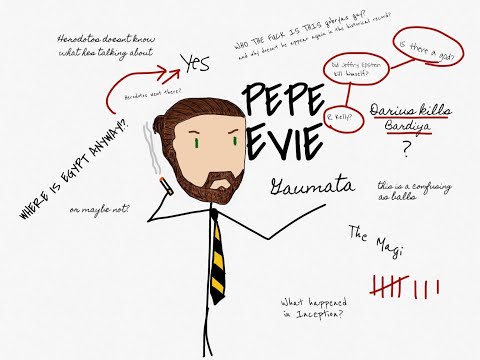 Herodotos doesnt know
what hes talking about
Yes
WHO THE FUCK IS THIS gobryas guy?
and why doesnt he appear again in the historical record?
Is there a god?
Did Jeffry Epstien
kill himself?
Herodotus went there?
PEPE
EVIE
R. Kelly?
Darius kills
Bardiya
?
WHERE IS EGYPT ANYWAY!?
or maybe not?
Gaumata
this is a confusing
as balls
The Magi
What happened
in Inception?